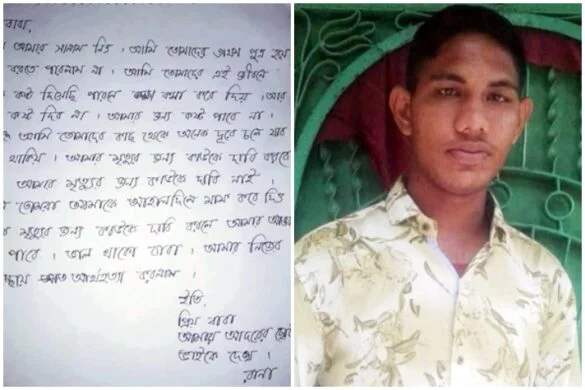 বাবা,
আমার সালাম নিও। আমি তোমাদের যোগ্য পুত্র হতে
করতে পারলাম না। আমি তোমাদের এই জীবনে
কষ্ট দিয়েছি পারলে ক্ষমা করে দিয়। আর
কষ্ট দিব না। আমার জন্য কষ্ট পাবে না।
আমি তোমাদের কাছ থেকে অনেক দূরে চলে যাব
থাকিয়। আমার মৃত্যুর জন্য কাউকে দাবি করবে
আমার মৃত্যুর জন্য কাউকে দাবি নাই।
তোমরা আমাকে মাফ করে দিও
মৃত্যুর জন্য কাউকে দাবি করলে আমার আত্মা
পাবে। ভাল থাকো বাবা। আমার নিজের
আত্মহত্যা করলাম।
ইতি
প্রিয় বাবা
আমার আদরের ছোট
ভাইকে দেখো।
রানা